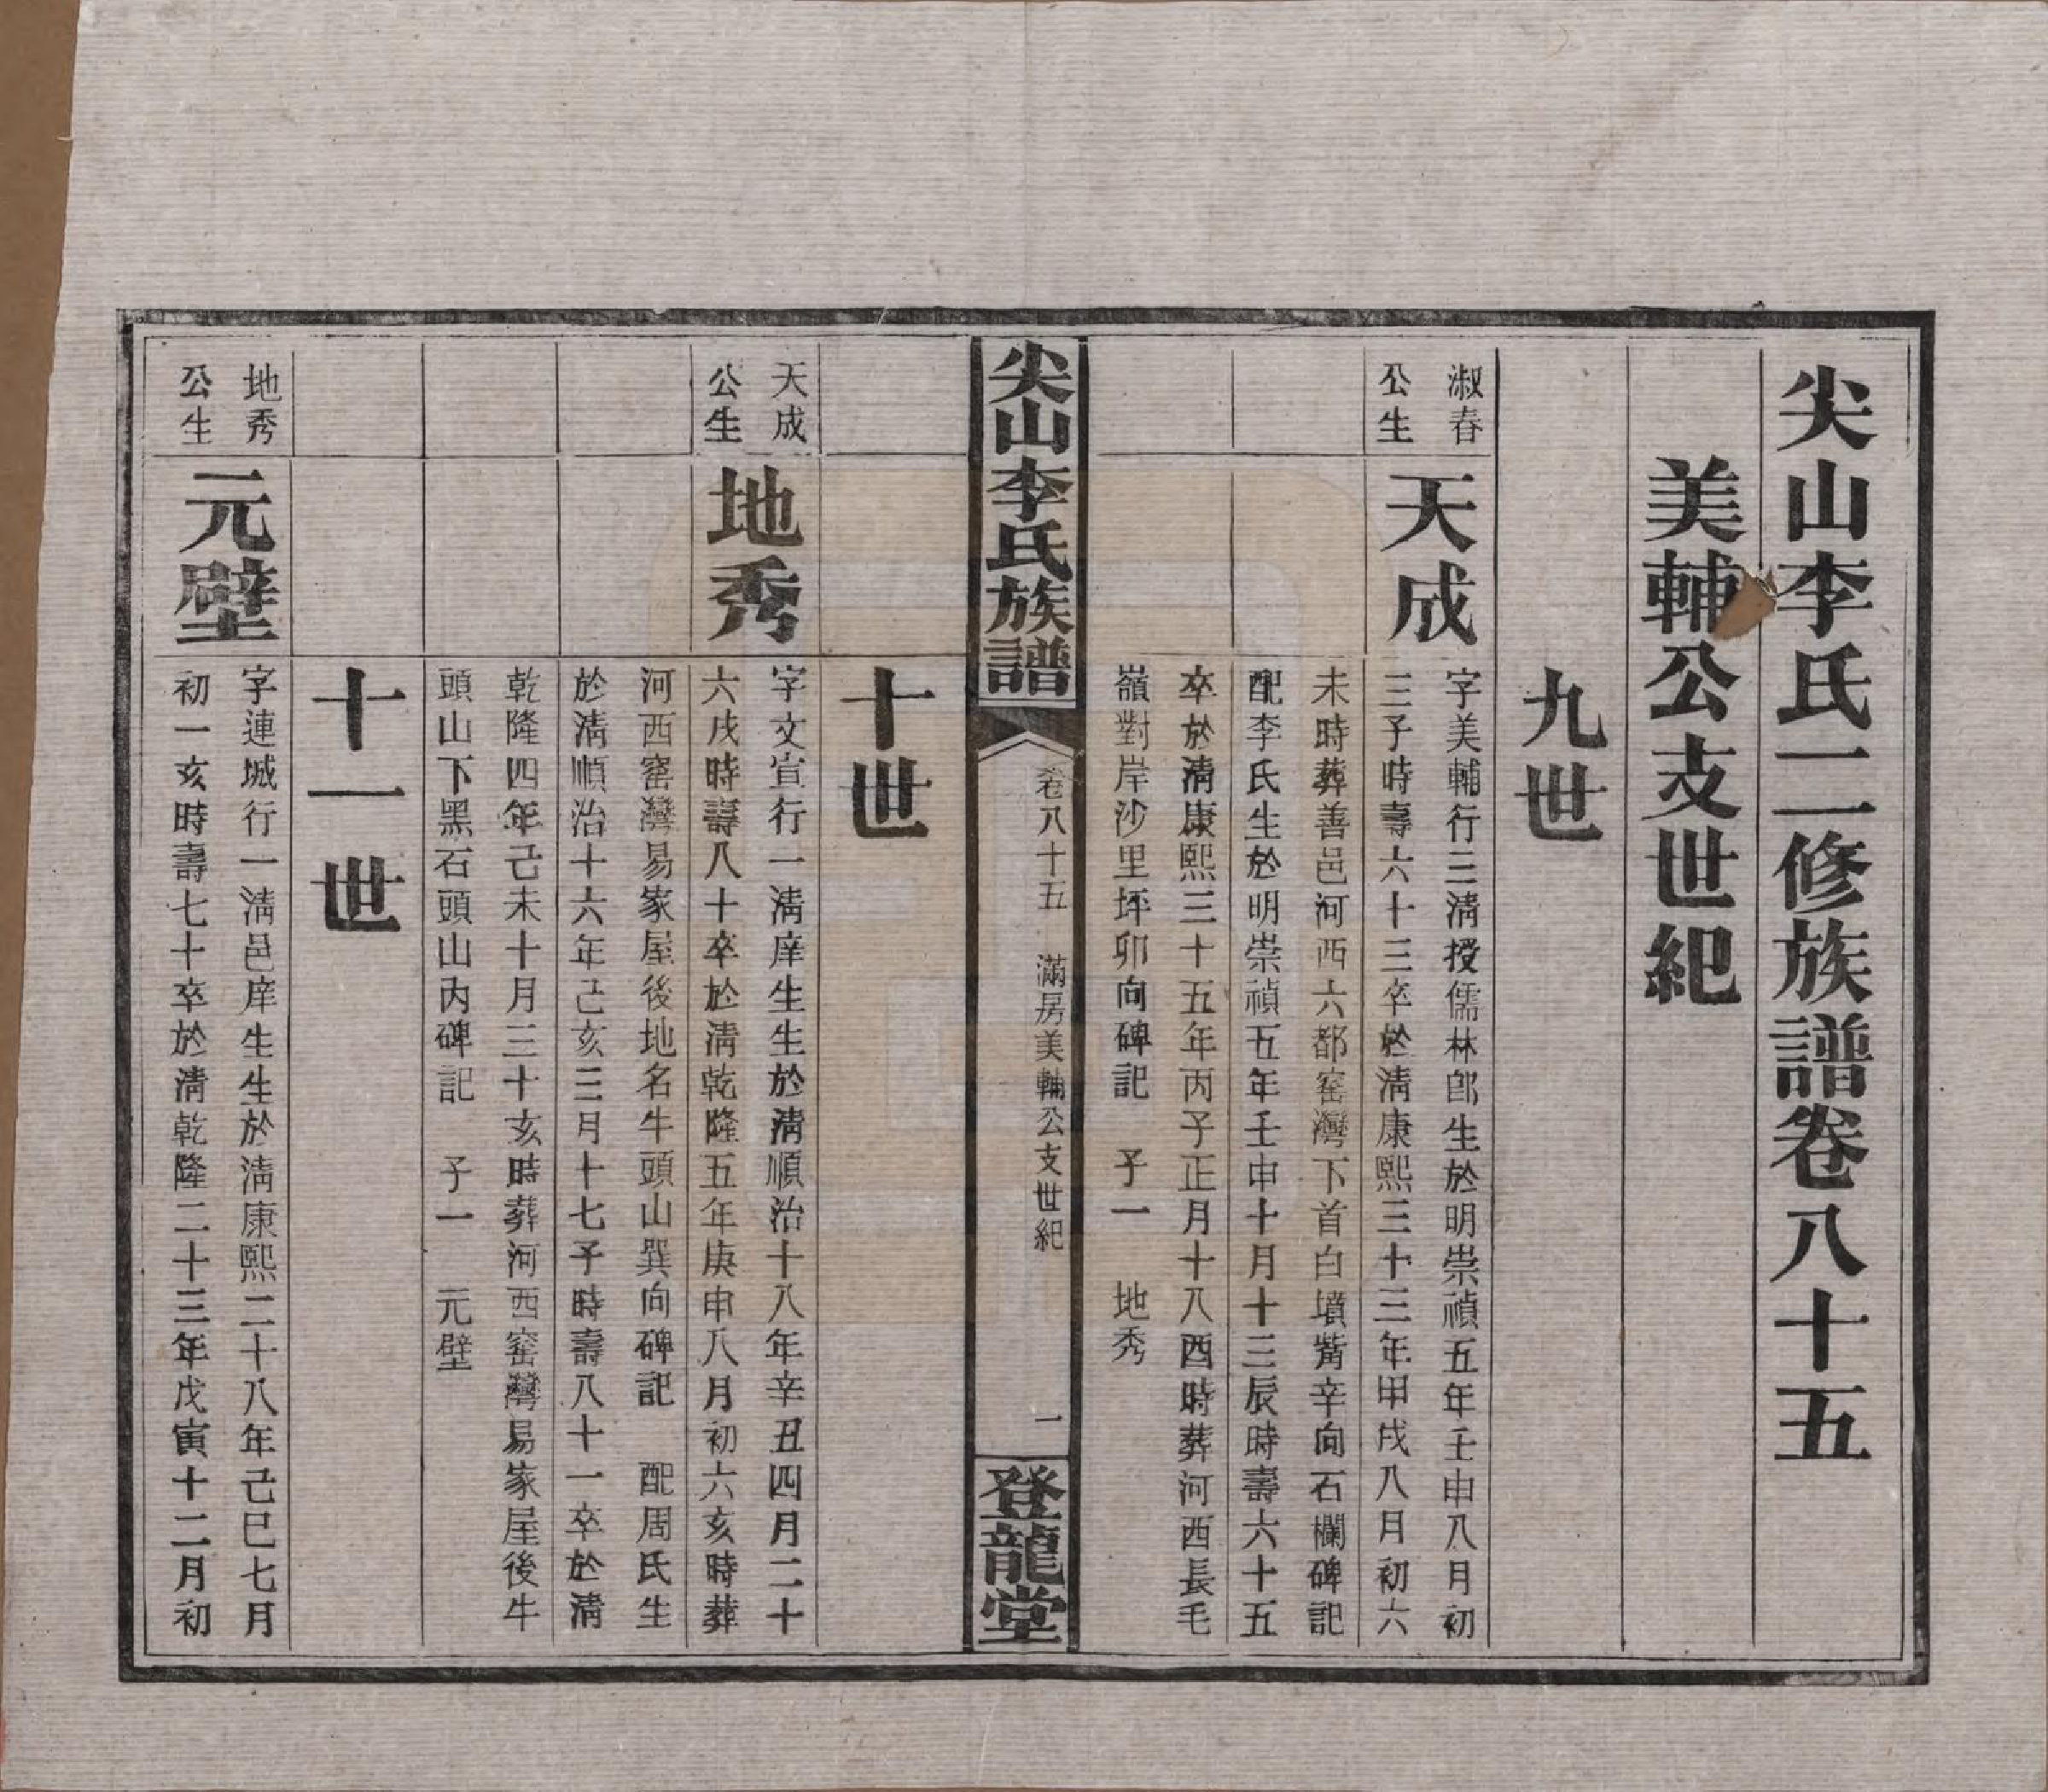 尖山李氏二修族譜卷八十五
美輔公支世紀
九世
淑春
公生
天成
字美輔行三淸授儒林郎生於明崇禎五年壬申八月初
三子時壽六十三卒於淸康熙三十三年甲戌八月初六
未時葬善邑河西六都窰灣下首白墳嘴辛向石欄碑記
配李氏生於明崇禎五年壬申十月十三辰時壽六十五
卒於淸康熙三十五年丙子正月十八酉時葬河西長毛
嶺對岸沙里坪卯向碑記 子一 地秀
尖山李氏族譜
卷八十五 滿房美輔公支世紀
一
登龍堂
十世
天成
公生
地秀
字文宣行一淸庠生生於淸順治十八年辛丑四月二十
六戌時壽八十卒於淸乾隆五年庚申八月初六亥時葬
河西窰灣易家屋後地名牛頭山巽向碑記 配周氏生
於淸順治十六年己亥三月十七子時壽八十一卒於淸
乾隆四年己未十月三十亥時葬河西窰灣易家屋後牛
頭山下黑石頭山內碑記 子一 元壁
十一世
地秀
公生
元壁
字連城行一淸邑庠生生於淸康熙二十八年己巳七月
初一亥時壽七十卒於淸乾隆二十三年戊寅十二月初